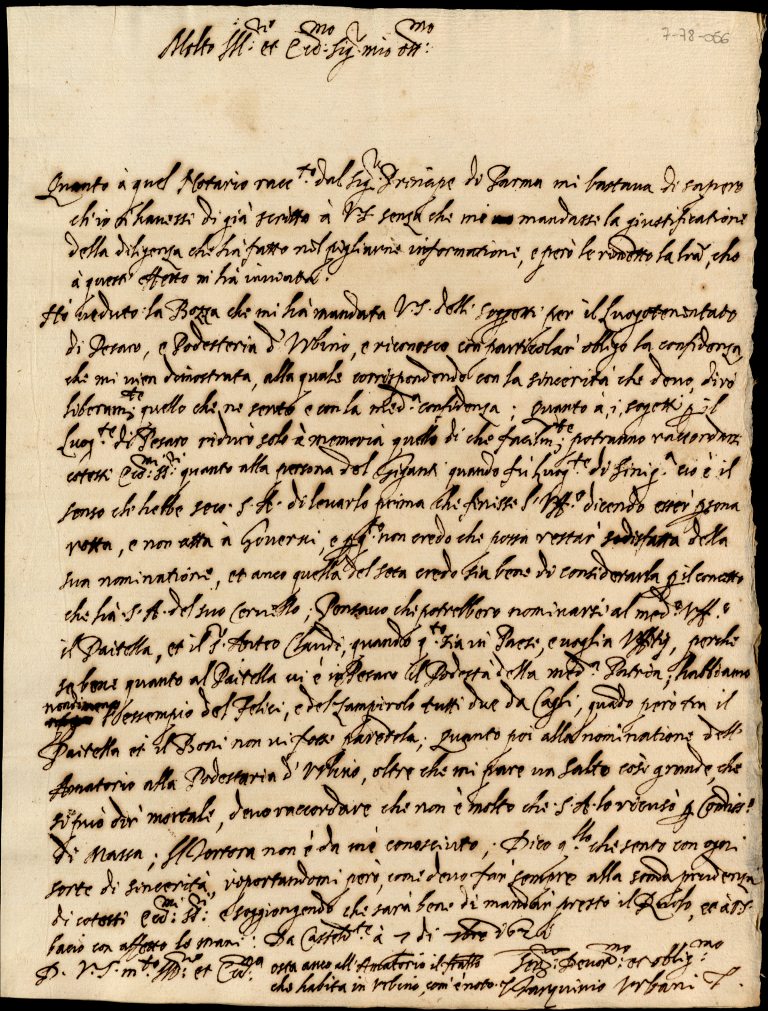 7-78-066
Molto Ill.re et Ecc.mo Sig.r mio oss.mo
Quanto à quel Notario racc.to dal Sig.r Principe di Parma mi bastava di sapere
ch'io havessi di già scritto à V.S. senza che me mandasse la giustificatione
della diligenza che hà fatto nel pigliarne informatione, e però le rimetto la lra, che
à questi effetto m'hà inviata.
Hò veduto la Bozza che mi hà mandata V.S. delli soggetti per il Luogotenentato
di Pesaro, e Podesteria d'Urbino, e riconosco con particolar obligo la confidenza
che mi vien dimostrata, alla quale corrispondendo con la sincerità che devo, dirò
liberam.te quello che ne sento e con la med.a confidenza; Quanto à i sogetti p il
Luog.te di Pesaro ridurò solo à memoria quello di che facilm.te potranno raccordarsi
cotesti Ecc.mi SS.ri quanto alla persona del Giganti quando fù Luog.te di Sinig.a ciò è il
senso che hebbe seco S.A. di levarlo prima che finisse l'Uff.o dicendo esser psona
rotta, e non atta à Governi, e p q.o non credo che possa restar sodisfatta della
sua nominatione, et anco quella del seta credo sia bene di considerarla p il concetto
che hà S.A. del suo Cervello; Pensavo che potrebbero nominarsi al med.o Uff.o
il Paitella, et il S.r Anteo Claudi, quando q.to sia in Paese, e voglia Uffitij, perche
se bene quanto al Paitella vi è in Pesaro il Podestà della med.a Patria, habbiamo
nondimeno l'essempio del Felici, e del Lampirolo tutti due da Cagli, quado però tra il
Paitella et il Boni non vi fosse parentela; Quanto poi alla nominatione dell'
Amatorio alla Podestaria d'Urbino, oltre che mi pare un salto così grande, che
si può dir mortale, devo raccordare che non è molto che S.A. lo ricusò p Comiss.o
di Massa; Il Tortora non è da me conosciuto; Dico q.llo che sento con ogni
sorte di sincerità, riportandomi però, come devo far sempre alla somma prudenza
di cotesti Ecc.mi SS.ri e soggiongendo che sarà bene di mandar presto il Ruolo, et à V.S.
bacio con affetto le mani. Da Casteld.te à 7 di
D. V.S. m.to Ill.re et Ecc.ma
osta anco all'Amatorio il fratello
che habita in Urbino, com'è noto.
Ser.re Devot.mo et oblig.mo
Tarquinio Urbani